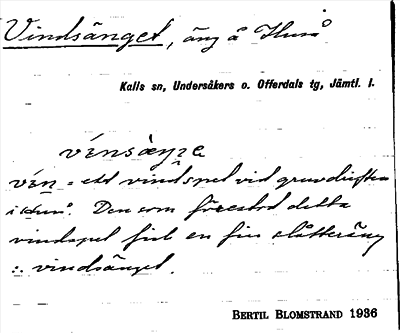 Vindsänget, äng å Huså
Kalls sn, Undersåkers o. Offerdals tg, Jämtl. l.
vín = ett vindspel vid gruvdriften
i Huså. Den som förestod detta
vindspel fick en fin slåtteräng
:. vindsänget.
BERTIL BLOMSTRAND 1936